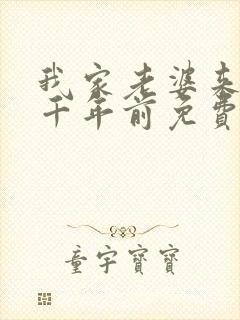 我家老婆来
千年前免费
童宇宝宝